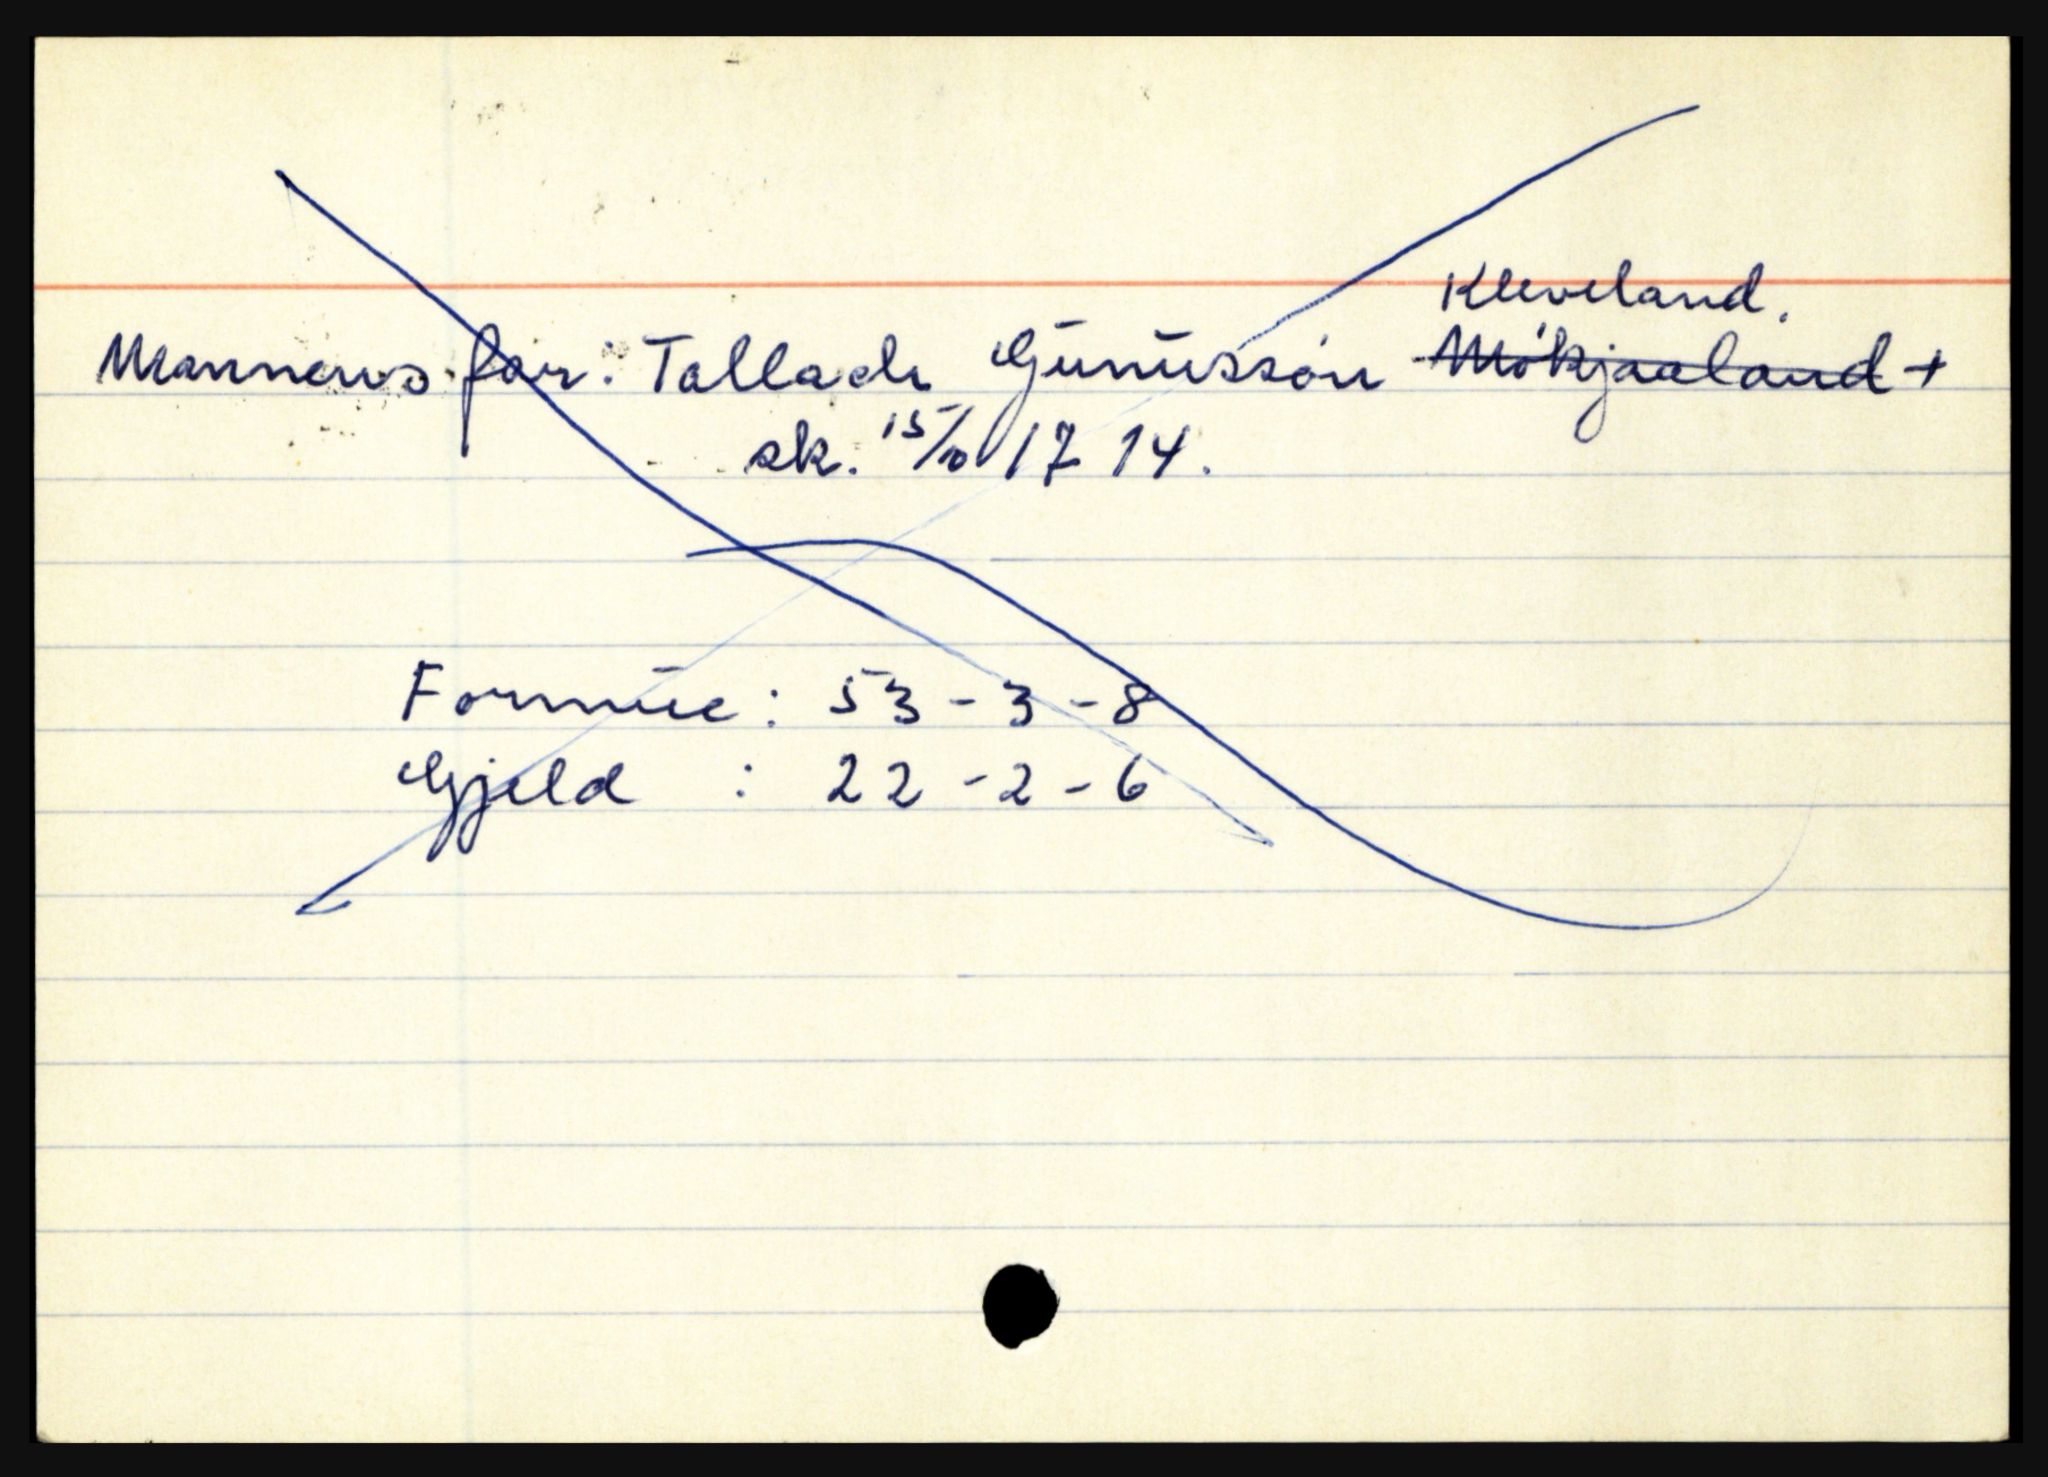 Kleveland.
Mannens far: Tallach Gunusson Mökjaaland +
sk. 15/10 1714.
Formue: 53-3-8
Gjeld : 22-2-6